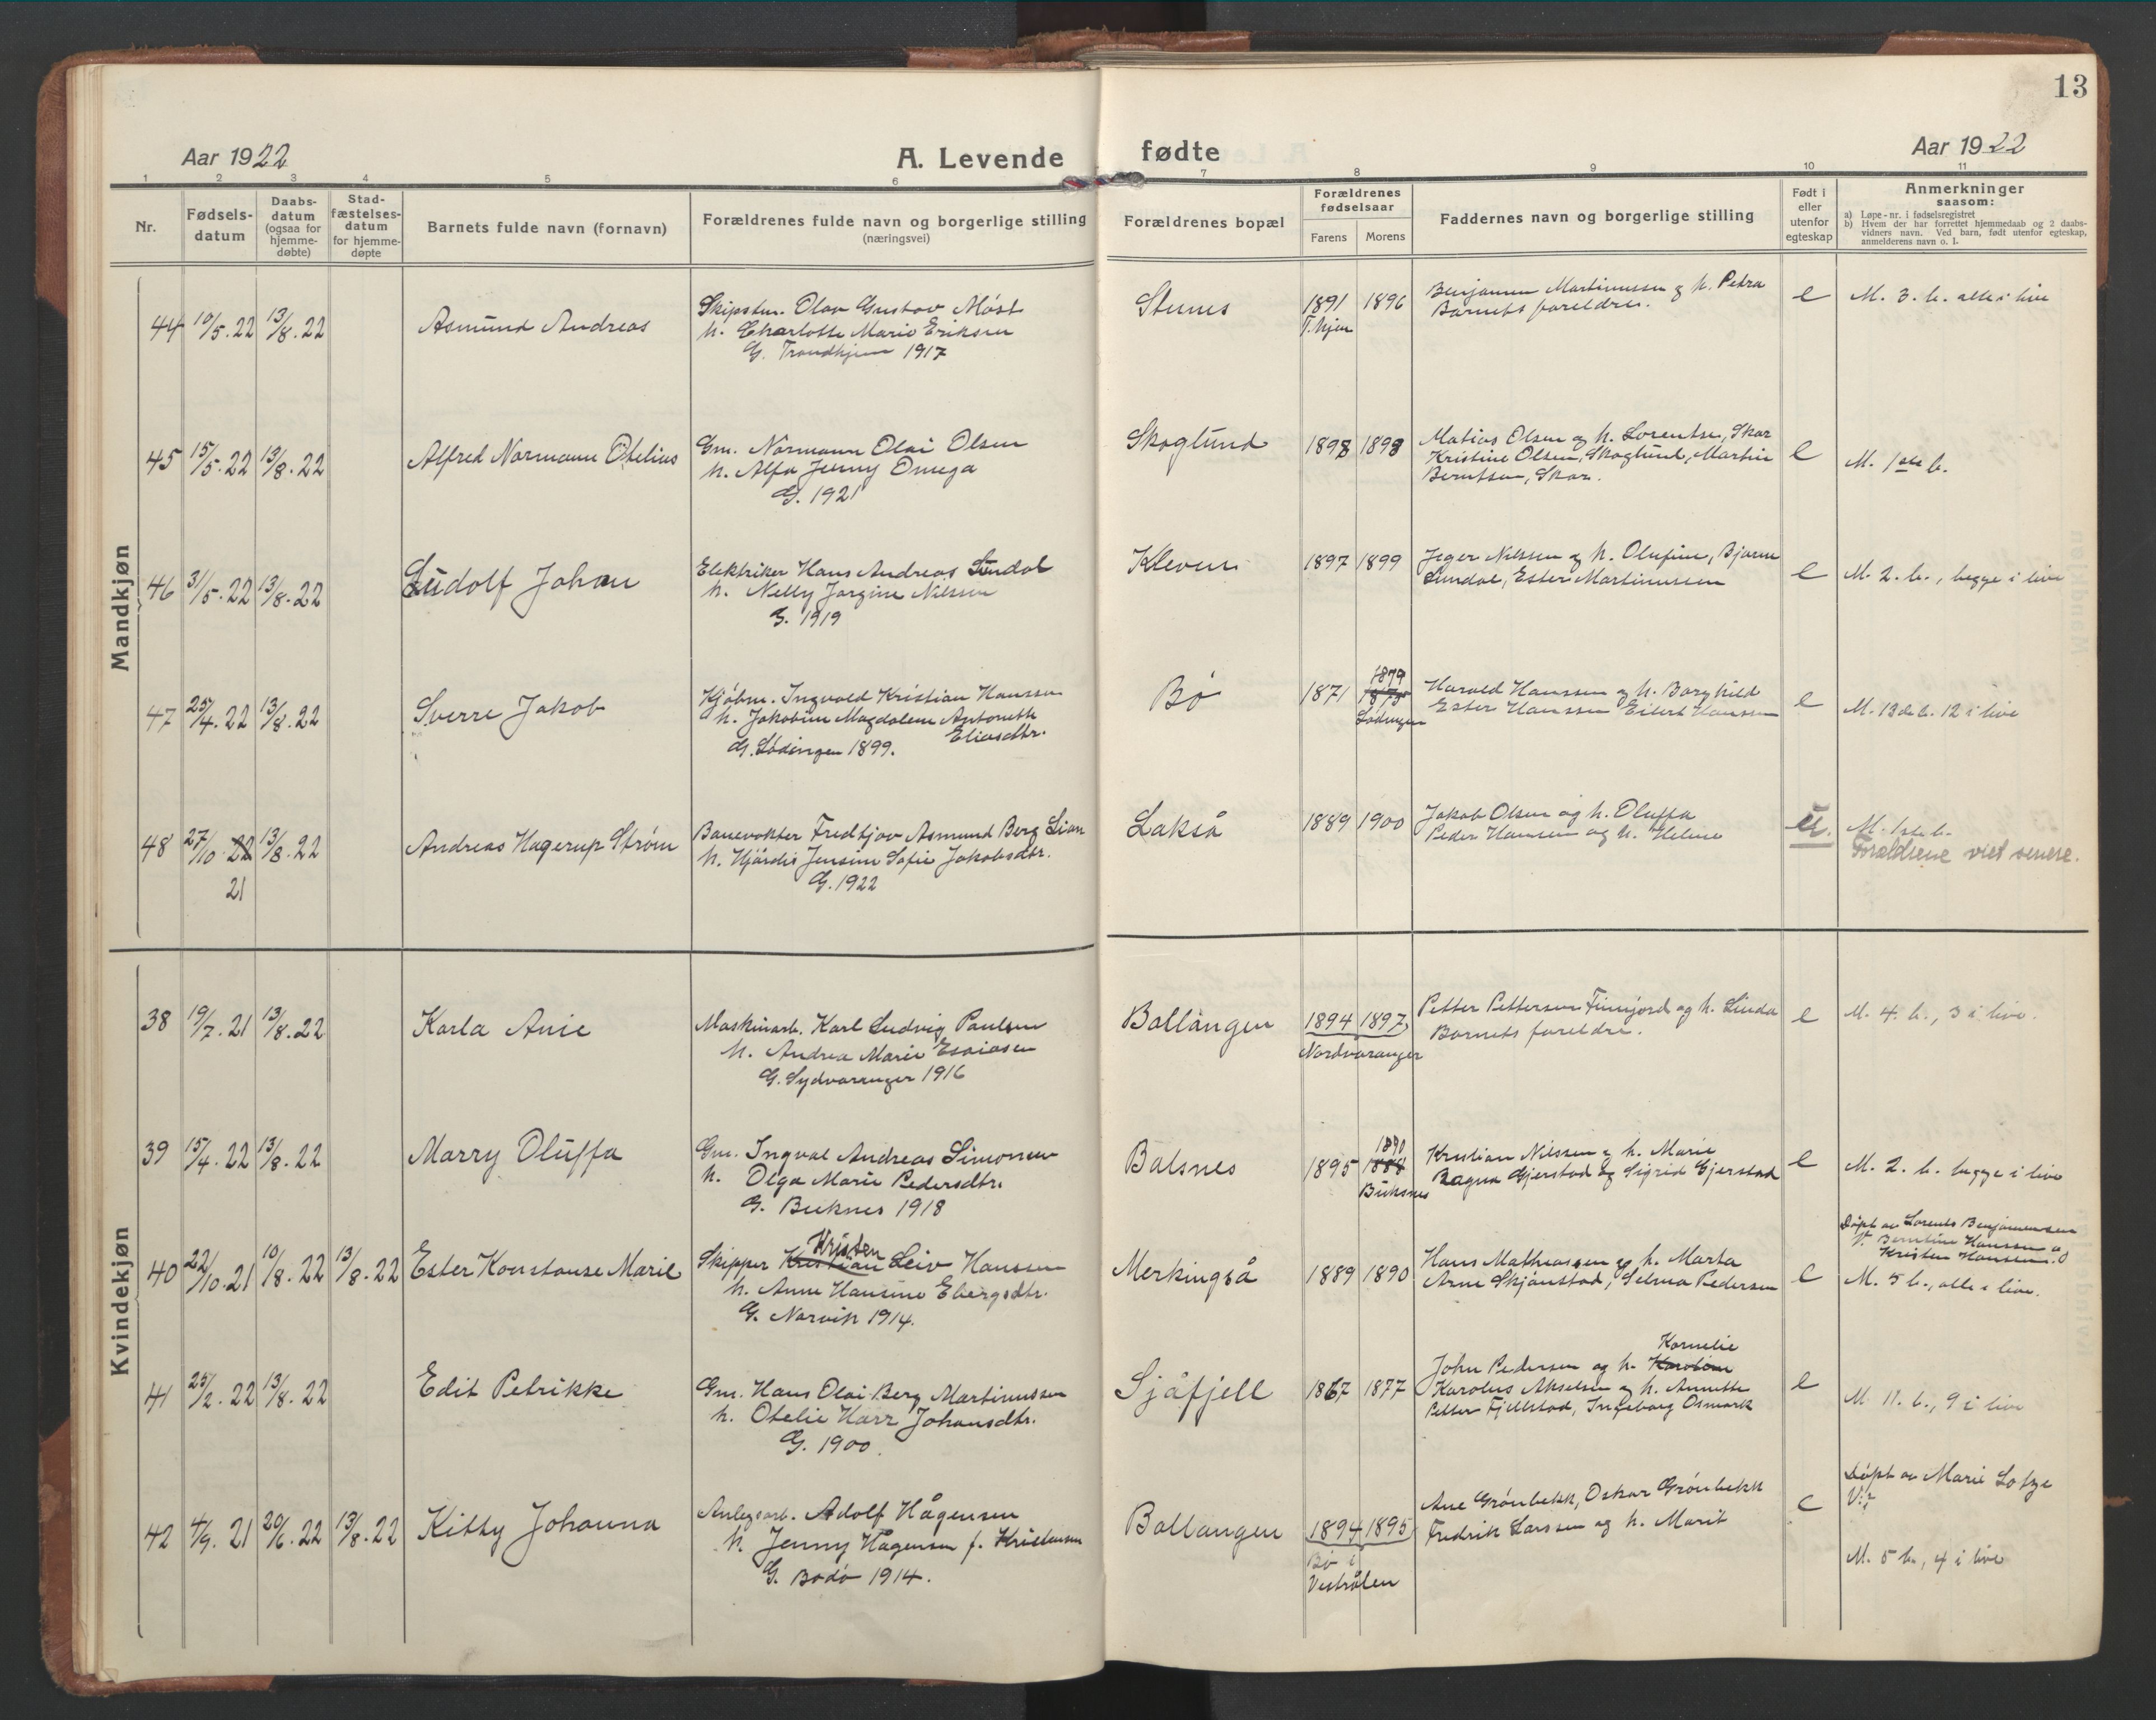 13
Aar 1922
A. Levende fødte
Aar 1922
1 2 3 4 5 6 7 8 9 10 11
Nr.
Fødsels-
datum
Daabs-
datum
(ogsaa for
hjemme-
døbte)
Stad-
fæstelses-
datum
for hjemme-
døpte
Barnets fulde navn (fornavn)
Forældrenes fulde navn og borgerlige stilling
(næringsvei)
Forældrenes bopæl
Forældrenes
fødselsaar
Farens Morens
Faddernes navn og borgerlige stilling
Født i
eller
utenfor
egteskap
Anmerkninger
saasom:
a) Løpe-nr. i fødselsregistret
b) Hvem der har forrettet hjemmedaab og 2 daabs-
vidners navn. Ved barn, født utenfor egteskap,
anmelderens navn o. l.
Mandkjøn
44 10/5.22 13/8.22
Asmund Andreas
Skipstm. Olav Gustav Møst
h. Charlotte Marie Eriksen
G. Trondhjem 1917
Stunes
1891 1896
T.hjem
Benjamin Martinussen og h. Petra
Barnets foreldre.
e
M. 3. b. alle i live
45 15/5.22 13/8.22
Alfred Normann Otelius
Gm. Normann Olai Olsen
h. Alfa Jenny Omega
G. 1921
Skoglund
1898 1898
Matias Olsen og h. Lorentse, Skar
Kristine Olsen, Skoglund, Martin
Berntsen, Skar.
e
M. 1ste b.
46 31/5.22 13/8.22
Ludolf Johan
Elektriker Hans Andreas Lundal
h. Nelly Jørgine Nilssen
G. 1919
Kleven
1897 1899
Jeger Nilssen og h. Olufine, Bjarne
Lundal, Ester Martinussen
e
M. 2. b., begge i live
47 25/4.22 13/8.22
Sverre Jakob
Kjøbm. Ingvald Kristian Hanssen
h. Jakobine Magdalene Antonette
Eliasdtr.
G. Lødingen 1899.
Bø
1871 1879
1875
Lødingen
Harald Hanssen og h. Borghild
Ester Hanssen Eilert Hanssen
e
M. 13de b. 12 i live
48 27/10.22 13/8.22
21
Andreas Hagerup Strøm
Banevokter Fredtjov Asmund Berg Lian
h. Hjørdis Jensine Sofie Jakobsdtr.
G. 1922
Lakså
1889 1900
Jakob Olsen og h. Oluffa
Peder Hansen og h. Helene
u.
M. 1ste b.
Forældrene viet senere.
Kvindekjøn
38 19/7.21 13/8.22
Karla Anie
Maskinarb. Karl Ludvig Paulsen
h. Andrea Marie Esaiasen
G. Sydvaranger 1916
Ballangen
1894 1897
Nordvaranger
Petter Pettersen Finnjord og h. Linda
Barnets foreldre.
e
M. 4. b., 3 i live.
39 15/4.22 13/8.22
Marry Oluffa
Gm. Ingval Andreas Simonsen
h. Olga Marie Pedersdtr.
G. Buknes 1918
Balsnes
1895 1890
1888
Buksnes
Kristian Nilssen og h. Marie
Ragna Gjerstad og Sigrid Gjerstad
e
M. 2. b. begge i live
40 22/10.21 10/8.22 13/8.22
Ester Konstanse Marie
Kristen
Skipper Kristian Leiv Hanssen
h. Anne Hansine Ebergsdtr.
G. Narvik 1914.
Merkingså
1889 1890
Hans Mathiassen og h. Marta
Arne Skjånstad, Selma Pedersen
e
Døpt av Lorents Benjaminsen
V. Berntine Hanssen og
Kristen Hanssen.
M. 5 b., alle i live.
41 25/2.22 13/8.22
Edit Petrikke
Gm. Hans Olai Berg Martinussen
h. Otelie Harr Johansdtr.
G. 1900.
Sjåfjell
1867 1877
Kornelie
John Pedersen og h. Karoline
Karolus Akselsen og h. Annette
Petter Fjellstad, Ingeborg Osmark
e
M. 11. b., 9 i live
42 4/9.21 20/6.22 13/8.22
Kitty Johanna
Anlegsarb. Adolf Hågensen
h. Jenny Hågensen f. Kristensen
G. Bodø 1914.
Ballangen
1894 1895
Bø i
Vestrålen
Ane Grønbekk, Oskar Grønbekk
Fredrik Larssen og h. Marit
e
Døpt av Marie Lotze
V:
M. 5 b., 4 i live